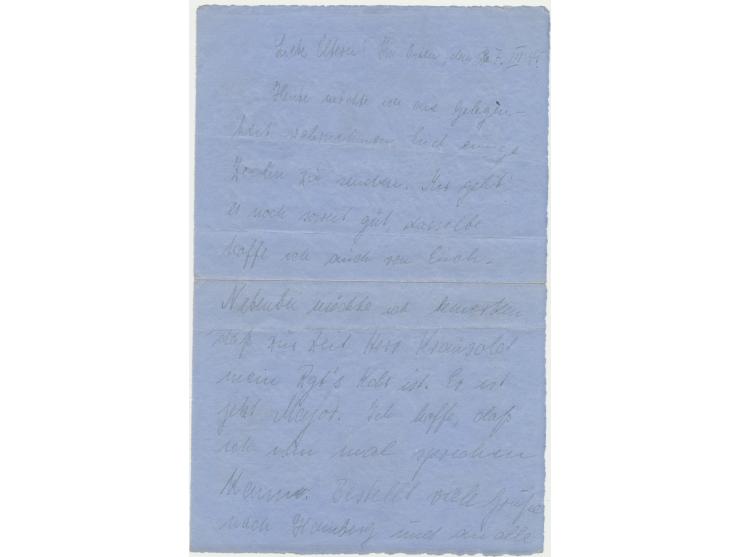 Liebe Eltern! Im Osten, den 7. III 44
Heute möchte ich die Gelegen-
heit wahrnehmen Euch einige
Zeilen zu senden. Mir geht
es noch soweit gut, dasselbe
hoffe ich auch von Euch.
Nebenbei möchte ich bemerken
daß zur Zeit Herr
mein Rgt's Kdr ist. Er ist
jetzt Major. Ich hoffe, daß
ich ihn mal sprechen
kann. Bestellt viele Grüße
nach und an alle